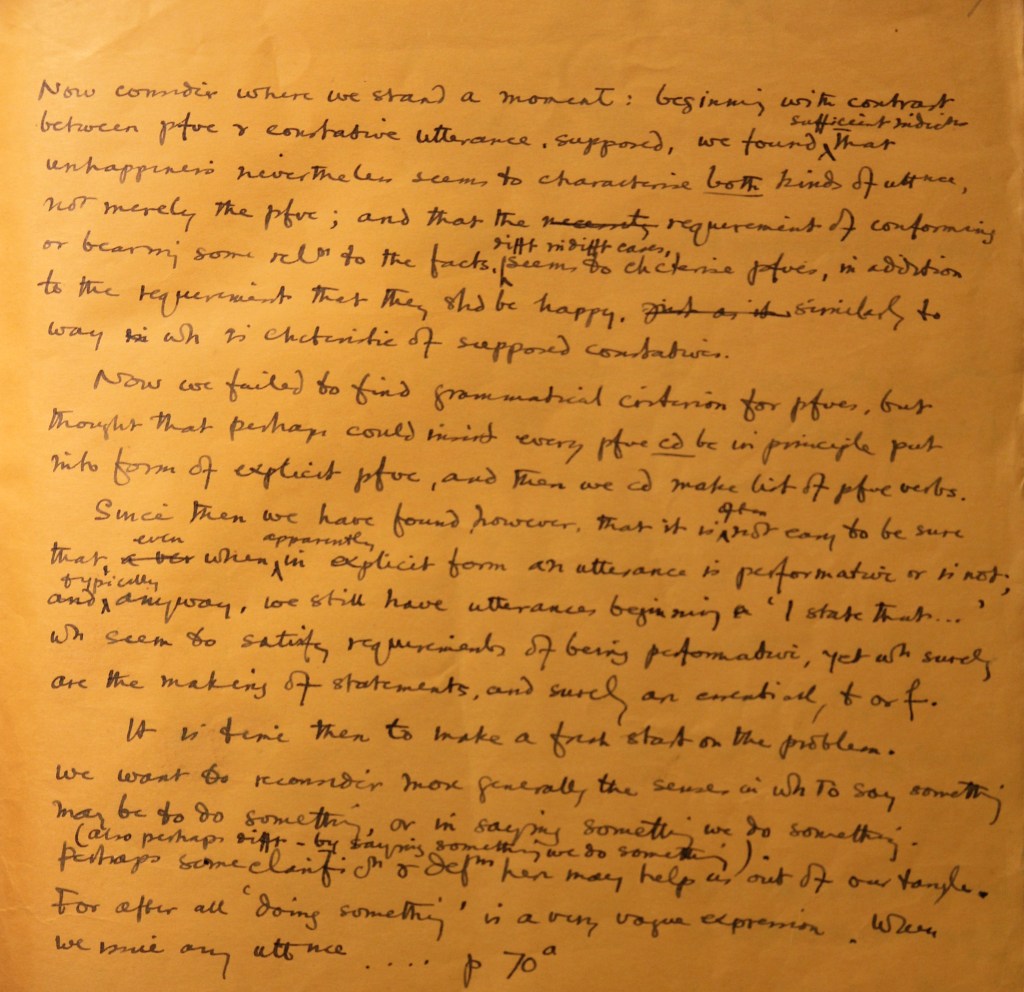 Now consider where we stand a moment: beginning with contrast
sufficient indicn
between pfve & constative utterance, supposed, we found that
unhappiness nevertheless seems to characterise both kinds of uttnce,
not merely the pfve; and that the necessity requirement of conforming
difft in difft cases,
or bearing some reln to the facts, seems to chcterise pfves, in addition
to the requirement that they shd be happy, just as it similarly to
way in wh is chcteristic of supposed constatives.
Now we failed to find grammatical criterion for pfves, but
thought that perhaps could insist every pfve cd be in principle put
into form of explicit pfve, and then we cd make list of pfve verbs.
often
Since then we have found, however, that it is not easy to be sure
even apparently
that, when in explicit form an utterance is performative or is not;
typically
and anyway, we still have utterances beginning 'I state that...'
wh seem to satisfy requirements of being performative, yet wh surely
are the making of statements, and surely are essentially t or f.
It is time then to make a fresh start on the problem.
we want to reconsider more generally the senses in wh to say something
may be to do something, or in saying something we do something.
(also perhaps difft - by saying something we do something).
Perhaps some clarificn & defns here may help us out of our tangle.
For after all 'doing something' is a very vague expression. When
we issue any uttnce .... p 70a